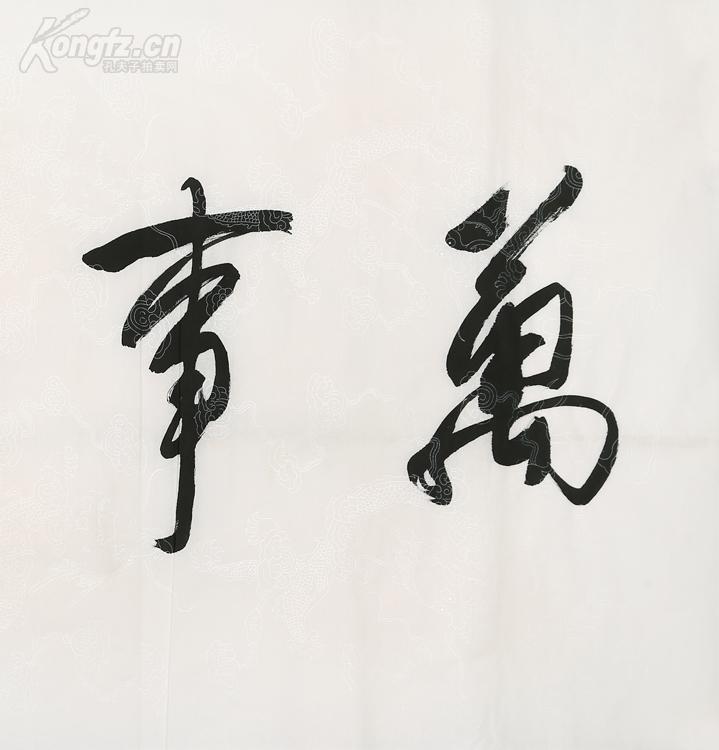 Kongfz.cn
孔夫子拍卖网
萬事